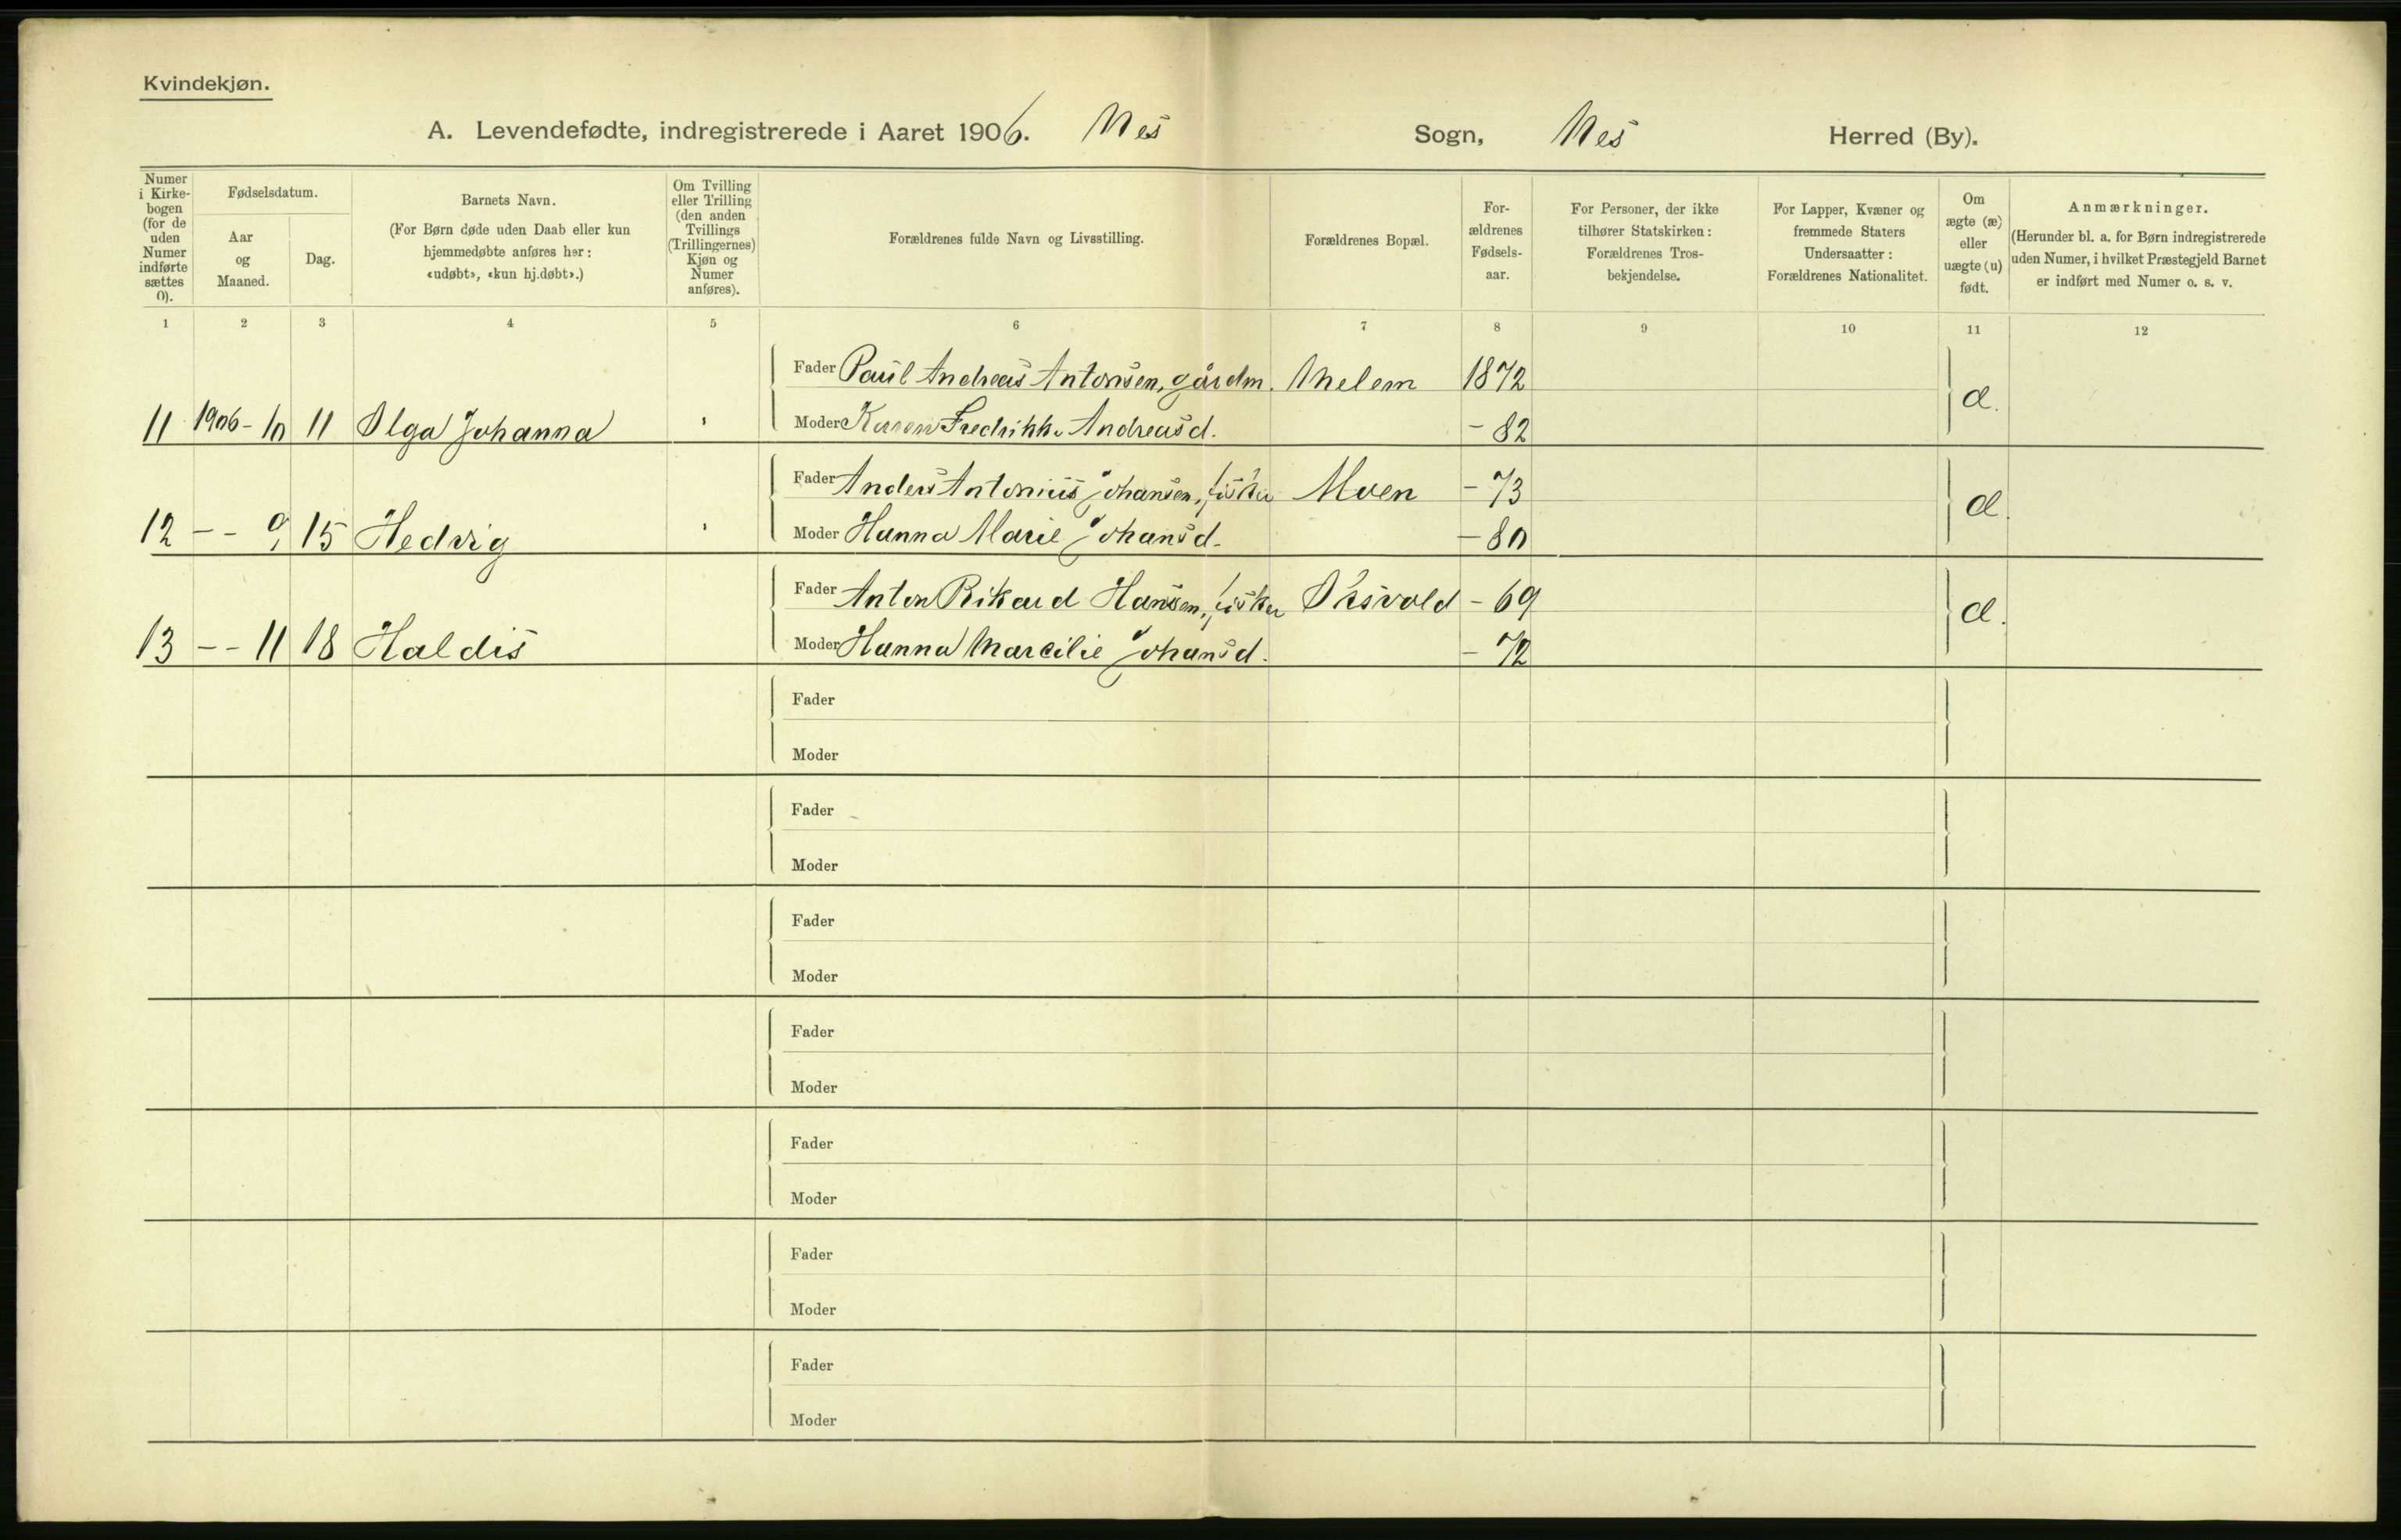 Kvindekjøn.
A. Levendefødte, indregistrerede i Aaret 1906. Nes Sogn, Nes Herred (By).
Numer i Kirke-bogen (for de uden Numer indførte sættes 0).
Fødselsdatum.
Aar og Maaned.
Dag.
Barnets Navn.
(For Børn døde uden Daab eller kun hjemmedøbte anføres her: «udøbt», «kun hj.døbt».)
Om Tvilling eller Trilling (den anden Tvillings (Trillingernes) Kjøn og Numer anføres).
Forældrenes fulde Navn og Livsstilling.
Forældrenes Bopæl.
For-ældrenes Fødsels-aar.
For Personer, der ikke tilhører Statskirken: Forældrenes Tros-bekjendelse.
For Lapper, Kvæner og fremmede Staters Undersaatter: Forældrenes Nationalitet.
Om ægte (æ) eller uægte (u) født.
Anmærkninger.
(Herunder bl. a. for Børn indregistrerede uden Numer, i hvilket Præstegjeld Barnet er indført med Numer o. s. v.
1 2 3 4 5 6 7 8 9 10 11 12
Fader Paul Andreas Antonsen, gårdm. Melem 1872
11 1906-10 11 Olga Johanna Moder Karen Fredrikke Andreasd. -82 æ.
Fader Anders Antonius Johansen, fisker Moen -73
12 - - 9 15 Hedvig Moder Hanna Marie Johansd. -80 æ.
Fader Anton Rikard Hansen, fisker Oksvold -69
13 - - 11 18 Haldis Moder Hanna Marcilie Johansd. -72 æ.
Fader
Moder
Fader
Moder
Fader
Moder
Fader
Moder
Fader
Moder
Fader
Moder
Fader
Moder